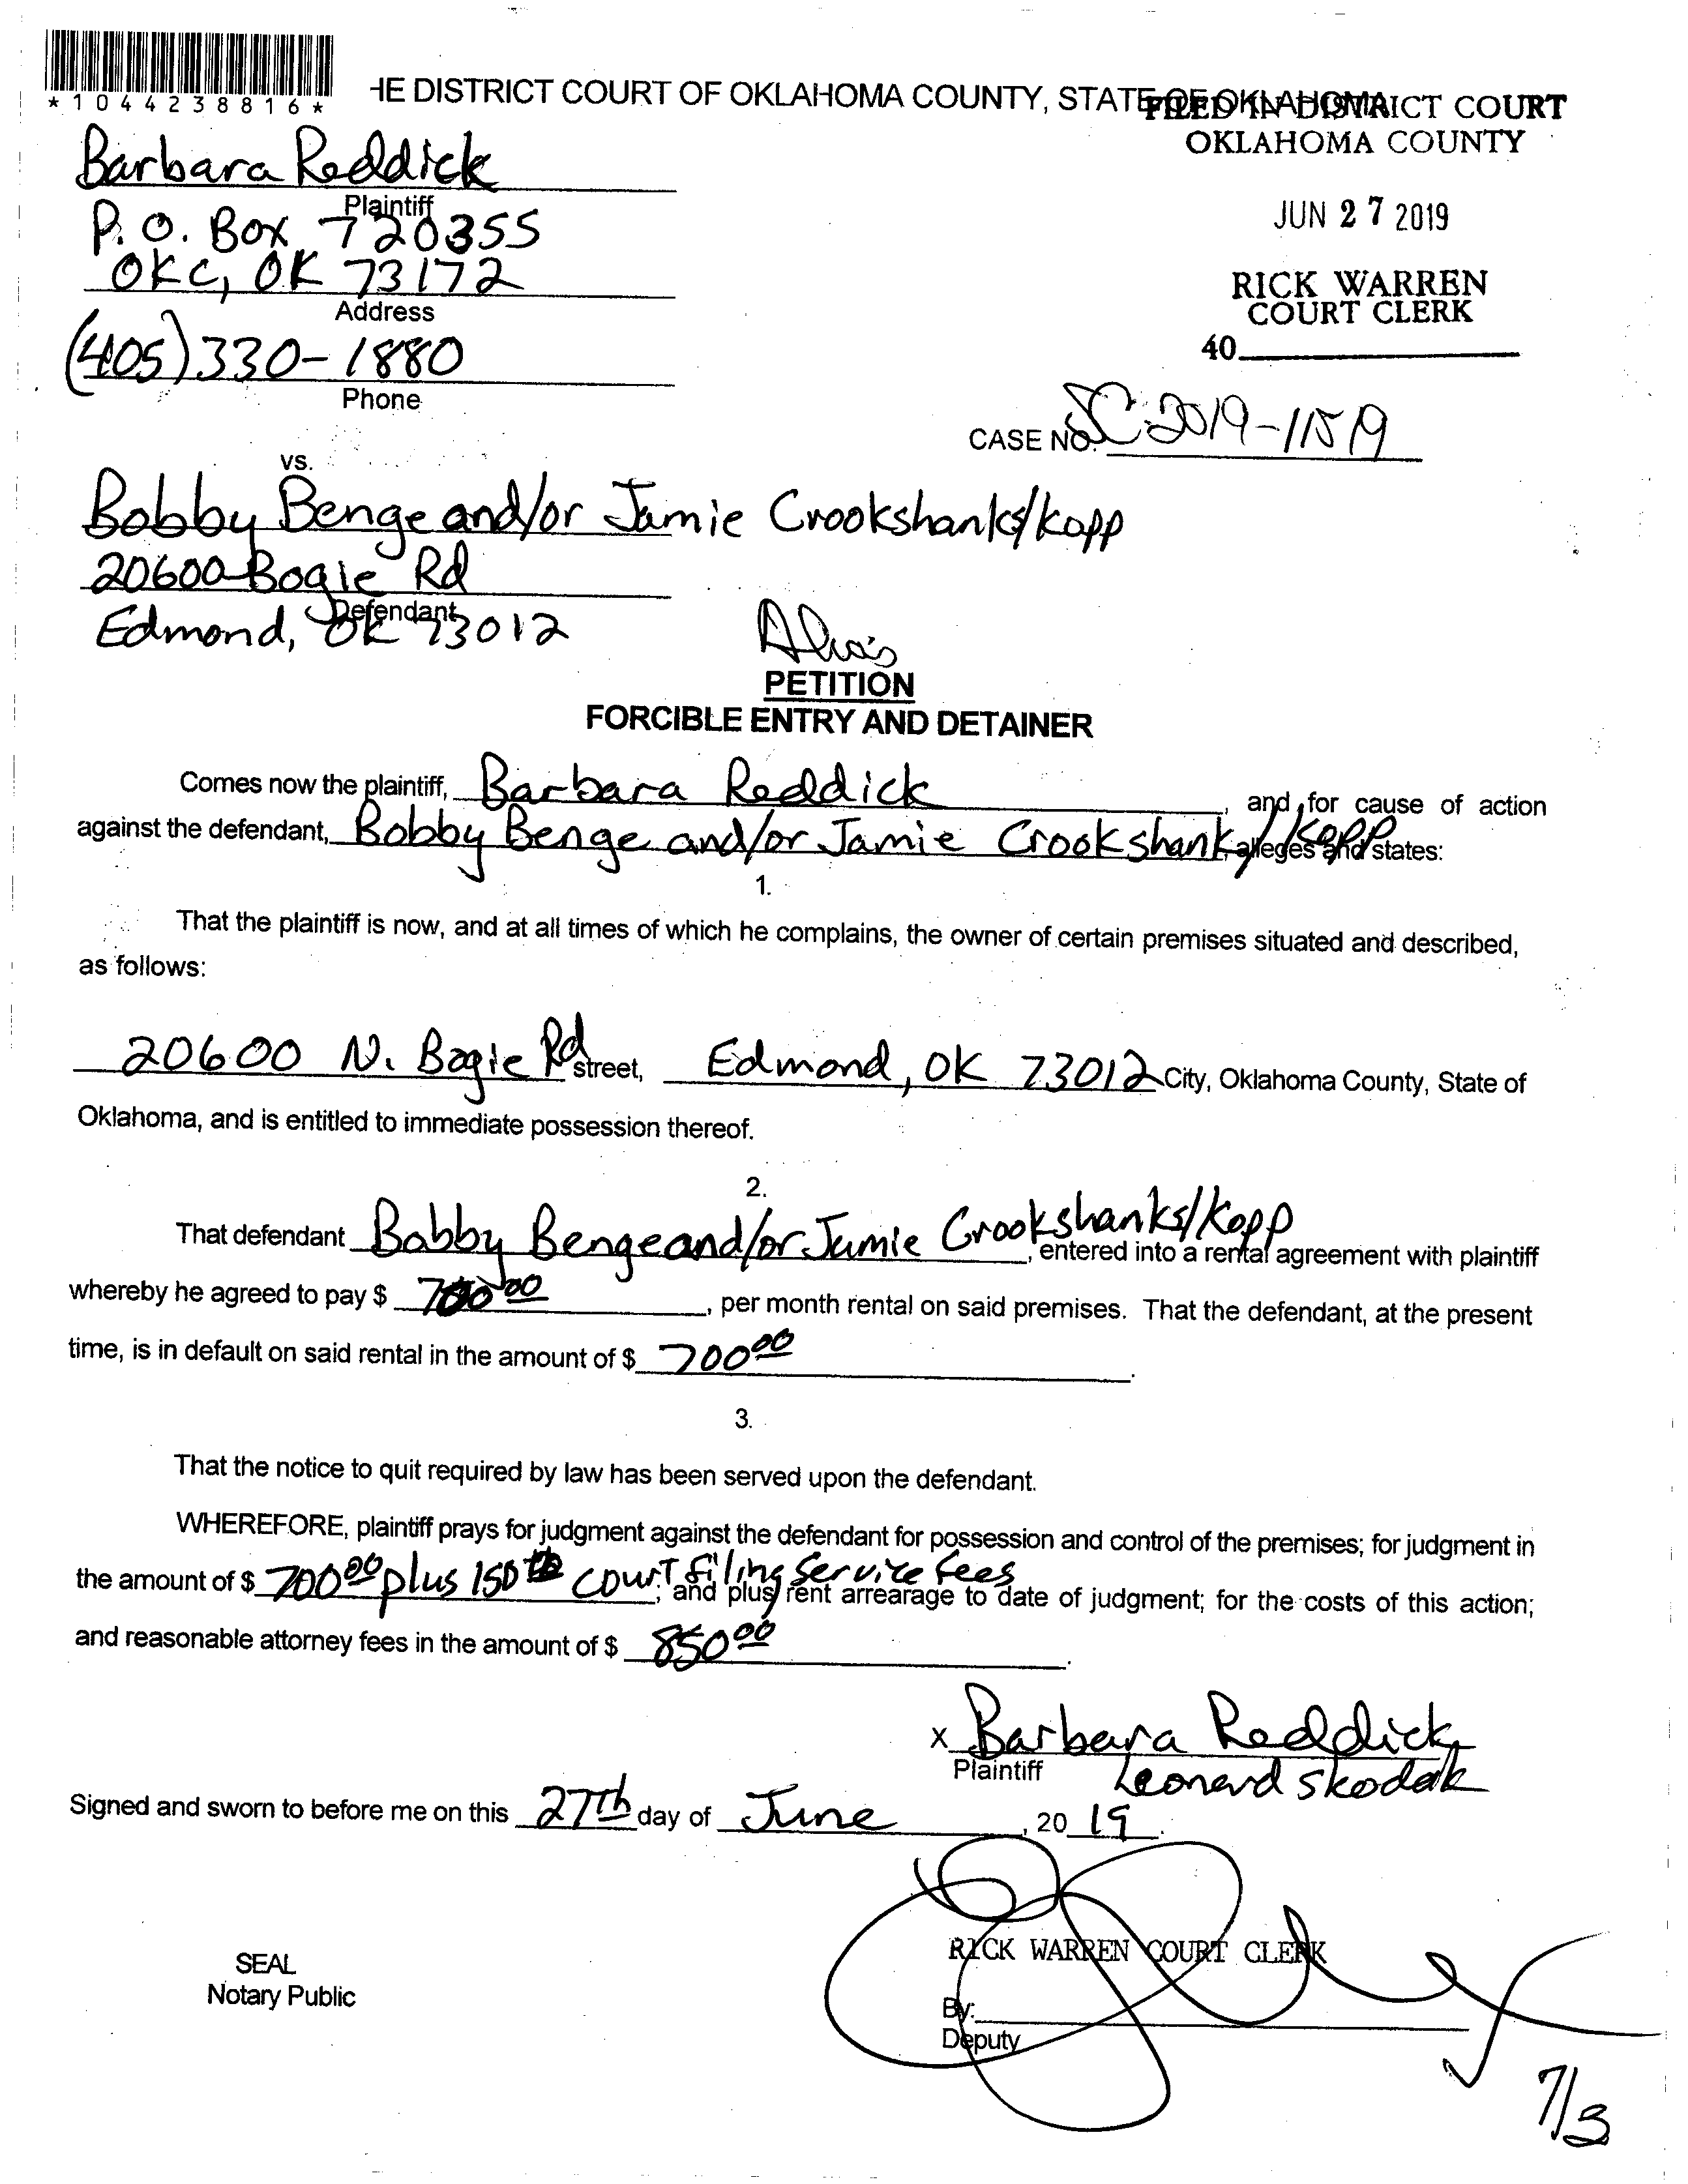 *1044238816*
HE DISTRICT COURT OF OKLAHOMA COUNTY, STATE OF OKLAHOMA
FILED IN DISTRICT COURT
OKLAHOMA COUNTY
JUN 27 2019
RICK WARREN
COURT CLERK
40
Barbara Reddick
Plaintiff
P.O. Box 720355
OKC, OK 73172
Address
(405) 330-1880
Phone
CASE NO. SC-2019-11519
vs.
Bobby Benge and/or Jamie Crookshanks/Kopp
20600 Bogie Rd
Defendant
Edmond, OK 73012
Alias
PETITION
FORCIBLE ENTRY AND DETAINER
Comes now the plaintiff, Barbara Reddick, and for cause of action
against the defendant, Bobby Benge and/or Jamie Crookshank/Kopp, alleges and states:
1.
That the plaintiff is now, and at all times of which he complains, the owner of certain premises situated and described,
as follows:
20600 N. Bogie Rd street, Edmond, OK 73012 City, Oklahoma County, State of
Oklahoma, and is entitled to immediate possession thereof.
2.
That defendant Bobby Benge and/or Jamie Crookshanks/Kopp, entered into a rental agreement with plaintiff
whereby he agreed to pay $ 700 00, per month rental on said premises. That the defendant, at the present
time, is in default on said rental in the amount of $ 700 00.
3.
That the notice to quit required by law has been served upon the defendant.
WHEREFORE, plaintiff prays for judgment against the defendant for possession and control of the premises; for judgment in
the amount of $ 700 00 plus 150 court filing Service fees; and plus rent arrearage to date of judgment; for the costs of this action;
and reasonable attorney fees in the amount of $ 850 00.
x Barbara Reddick
Plaintiff
Leonard Skodak
Signed and sworn to before me on this 27th day of June, 20 19.
RICK WARREN COURT CLERK
SEAL
Notary Public
By:
Deputy
7/3